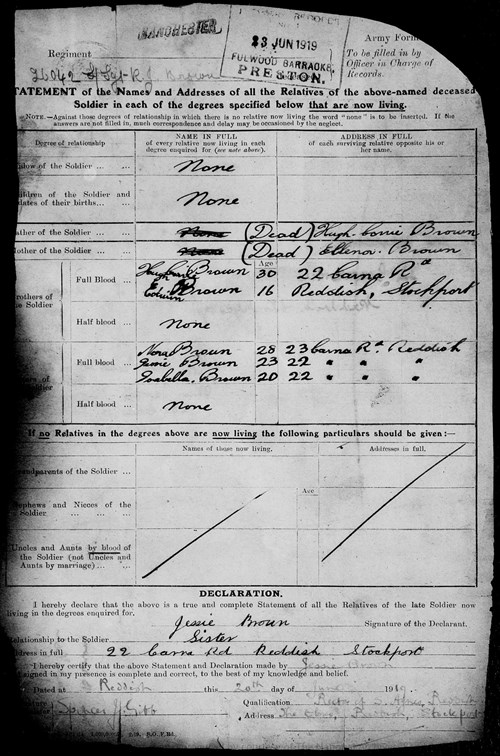 MANCHESTER
23 JUN 1919
FULWOOD BARRACKS,
PRESTON.
Regiment
Army Form
To be filled in by
Officer in Charge of
Records.
R. J. Brown
TATEMENT of the Names and Addresses of all the Relatives of the above-named deceased
Soldier in each of the degrees specified below that are now living.
NOTE.—Against those degrees of relationship in which there is no relative now living the word "none" is to be inserted. If the
answers are not filled in, much correspondence and delay may be occasioned by the neglect.
Degree of relationship
NAME IN FULL
of every relative now living in each
degree enquired for (see note above).
ADDRESS IN FULL
of each surviving relative opposite his or
her name.
idow of the Soldier ... ...
None
hildren of the Soldier and
dates of their births... ...
None
ather of the Soldier ... ...
None (Dead) Hugh Corrie Brown
other of the Soldier ... ...
None (Dead) Ellenor Brown
Age
rothers of
the Soldier
Full Blood ...
Brown 30 22 Carna Rd
Edwin Brown 16 Reddish, Stockport
Half blood ...
None
of
Soldier
Full blood ...
Nora Brown 28 23 Carna Rd Reddish
Jessie Brown 23 22 " " "
Isabella Brown 20 22 " " "
Half blood ...
None
If no Relatives in the degrees above are now living the following particulars should be given:—
Names of those now living.
Addresses in full.
Age
ndparents of the Soldier ...
ephews and Nieces of the
Soldier ... ... ...
Uncles and Aunts by blood of
the Soldier (not Uncles and
Aunts by marriage) ... ...
DECLARATION.
I hereby declare that the above is a true and complete Statement of all the Relatives of the late Soldier now
living in the degrees enquired for.
Jessie Brown Signature of the Declarant.
Relationship to the Soldier Sister
Address in full 22 Carna Rd Reddish Stockport
I hereby certify that the above Statement and Declaration made by Jessie Brown
signed in my presence is complete and correct, to the best of my knowledge and belief.
Dated at Reddish this 20th day of June 1919
Spencer J. Gibb
Qualification Rector of
Address The Stockport